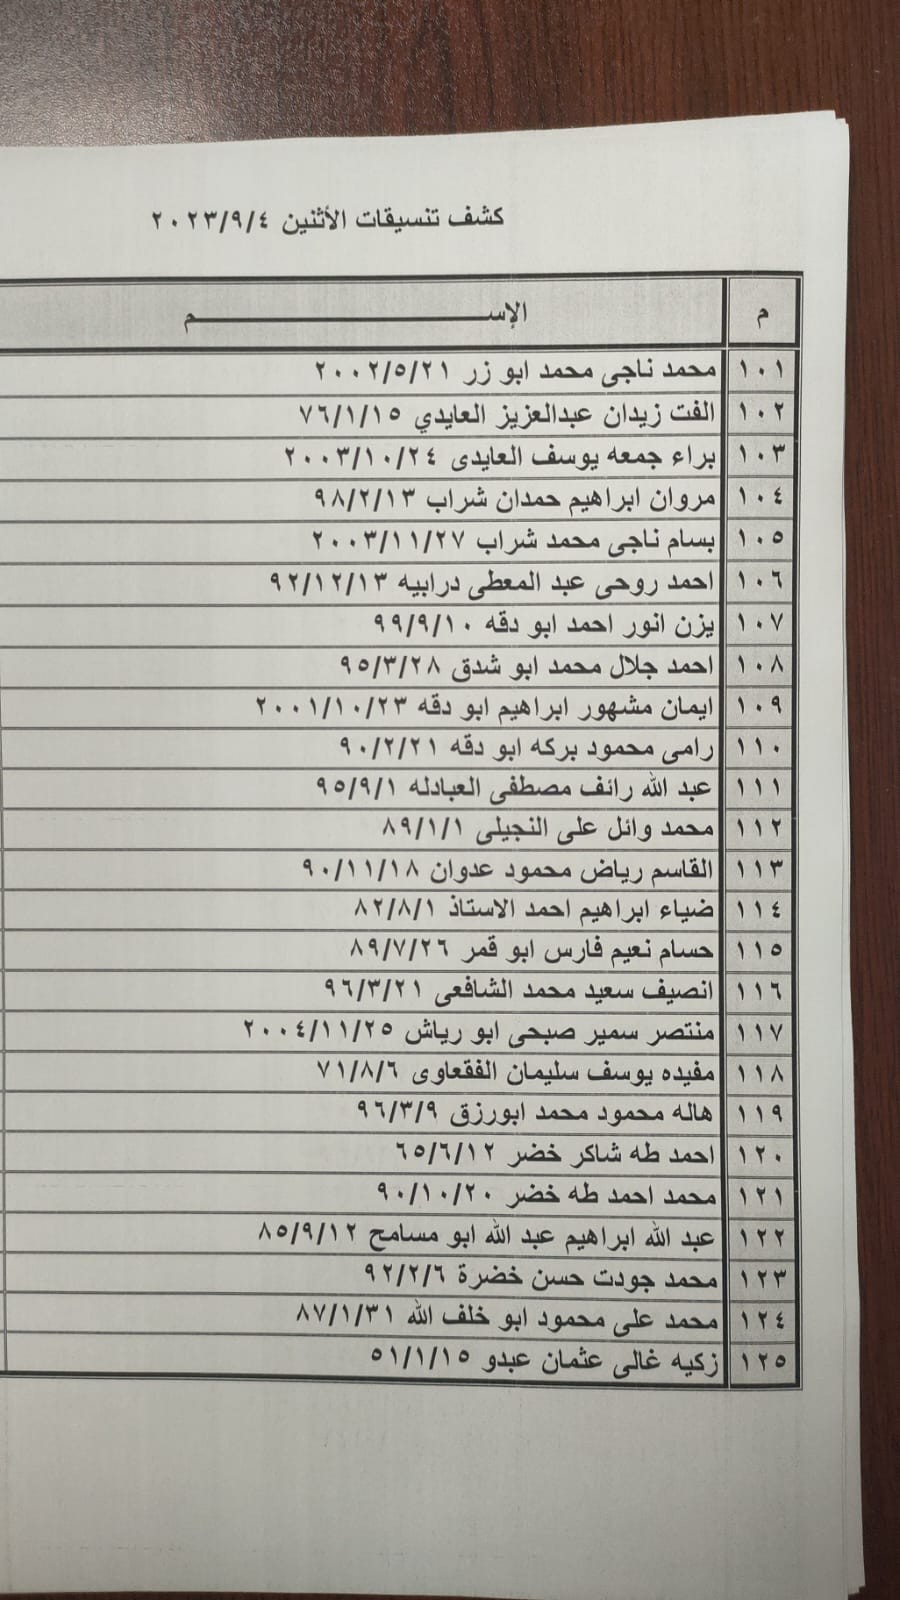 كشف تنسيقات الأثنين ٢٠٢٣/٩/٤
م الإســـــــــــــــــم
١٠١ محمد ناجى محمد ابو زر ٢٠٠٢/٥/٢١
١٠٢ الفت زيدان عبدالعزيز العايدي ٧٦/١/١٥
١٠٣ براء جمعه يوسف العايدى ٢٠٠٣/١٠/٢٤
١٠٤ مروان ابراهيم حمدان شراب ٩٨/٢/١٣
١٠٥ بسام ناجى محمد شراب ٢٠٠٣/١١/٢٧
١٠٦ احمد روحى عبد المعطى درابيه ٩٢/١٢/١٣
١٠٧ يزن انور احمد ابو دقه ٩٩/٩/١٠
١٠٨ احمد جلال محمد ابو شدق ٩٥/٣/٢٨
١٠٩ ايمان مشهور ابراهيم ابو دقه ٢٠٠١/١٠/٢٣
١١٠ رامى محمود بركه ابو دقه ٩٠/٢/٢١
١١١ عبد الله رائف مصطفى العبادله ٩٥/٩/١
١١٢ محمد وائل على النجيلى ٨٩/١/١
١١٣ القاسم رياض محمود عدوان ٩٠/١١/١٨
١١٤ ضياء ابراهيم احمد الاستاذ ٨٢/٨/١
١١٥ حسام نعيم فارس ابو قمر ٨٩/٧/٢٦
١١٦ انصيف سعيد محمد الشافعى ٩٦/٣/٢١
١١٧ منتصر سمير صبحى ابو رياش ٢٠٠٤/١١/٢٥
١١٨ مفيده يوسف سليمان الفقعاوى ٧١/٨/٦
١١٩ هاله محمود محمد ابورزق ٩٦/٣/٩
١٢٠ احمد طه شاكر خضر ٦٥/٦/١٢
١٢١ محمد احمد طه خضر ٩٠/١٠/٢٠
١٢٢ عبد الله ابراهيم عبد الله ابو مسامح ٨٥/٩/١٢
١٢٣ محمد جودت حسن خضرة ٩٢/٢/٦
١٢٤ محمد على محمود ابو خلف الله ٨٧/١/٣١
١٢٥ زكيه غالى عثمان عبدو ٥١/١/١٥